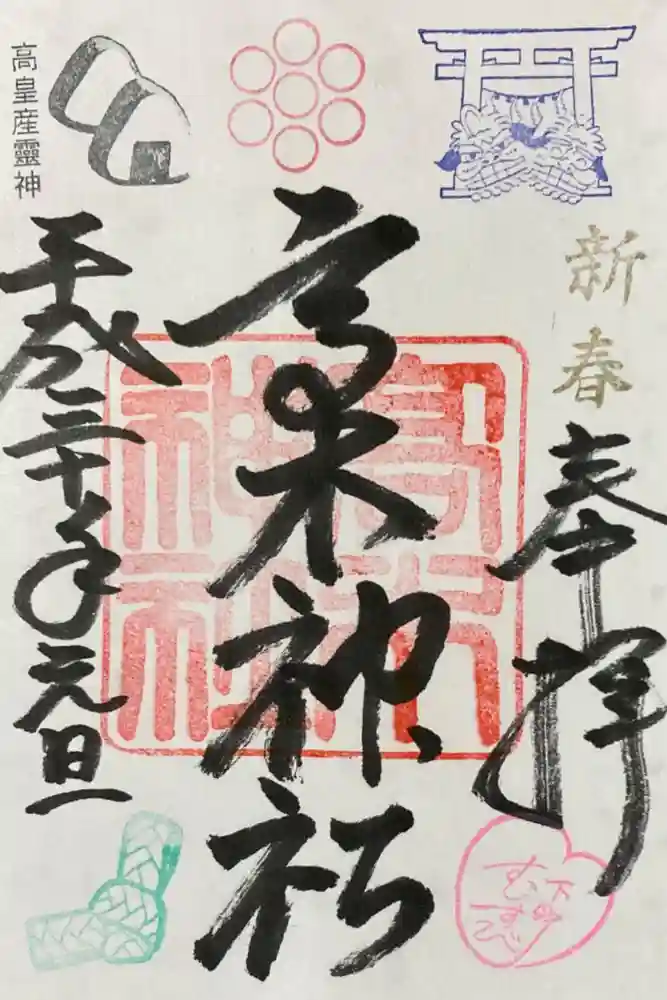 新春
奉拝
むすび
高木神社
高木神社
高皇産靈神
平成三十年元旦